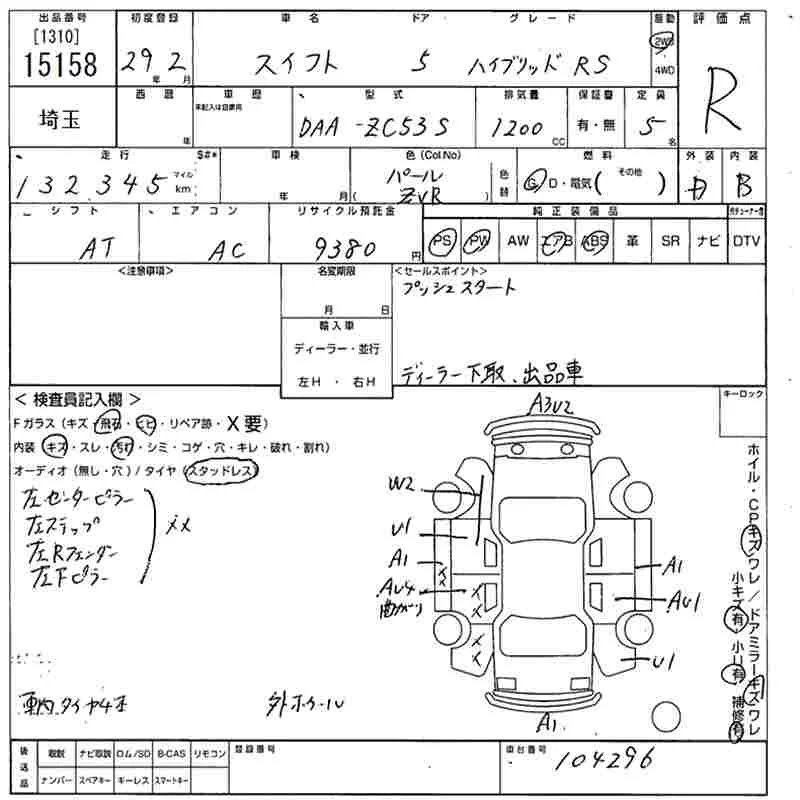 出品番号 初度登録 車名 ドア グレード 駆動 評価点
[1310]
15158 29年 2月 スイフト 5 ハイブリッド RS 2WD 4WD R
埼玉 西暦 年 車歴 未記入は自家用 型式 排気量 保証書 定員
DAA-ZC53S 1200cc 有・無 5名
走行 $#* 車検 色(ColNo) 燃料 外装 内装
132,345 マイル km 年 月 パール ( ZVR ) 色替 G・D・電気( その他 ) B
シフト エアコン リサイクル預託金 純正装備品
AT AC 9380円 PS PW AW エアB ABS 革 SR ナビ DTV
<注意事項> 名変期限 <セールスポイント>
プッシュスタート
月 日
輸入車
ディーラー・並行
左H・右H ディーラー下取、出品車
<検査員記入欄> キーロック
Fガラス(キズ・飛石・ヒビ・リペア跡・X要)
内装(キズ・スレ・汚れ・シミ・コゲ・穴・キレ・破れ・割れ)
オーディオ(無し・穴)/タイヤ(スタッドレス)
左センターピラー
左ステップ
左Rフェンダー
左Fピラー
××
A3U2
W2
U1
A1
××
AU4
曲がり
××
××
A1
AU1
U1
A1
ホイル・CPキズワレ/ドアミラーキズワレ
小キズ有・小U有・補修有
車内タイヤ4本 外ホイール
後送品 取説 ナビ取説 ロム/SD B-CAS リモコン 登録番号 車台番号
ナンバー スペアキー キーレス スマートキー 104296